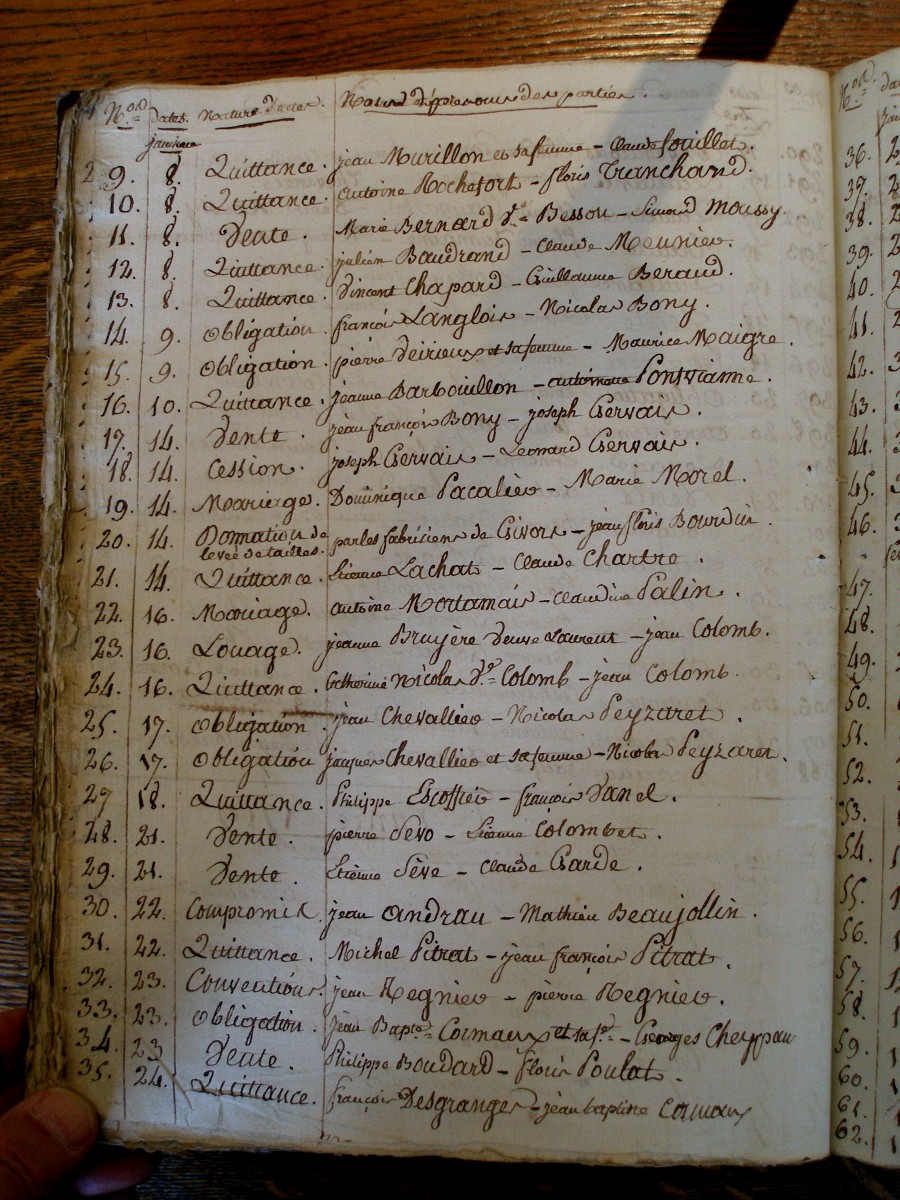 Nos dates. Nature d'actes. Noms & prenoms des parties.
janvier
9. 8. Quittance. jean Murillon et sa femme - Claude fouillet.
10. 8. Quittance. antoine Rochefort - floris Tranchand.
11. 8. Vente. Marie Bernard Ve Besson - Simond Moussy.
12. 8. Quittance. julien Baudrand - Claude Meunier.
13. 8. Quittance. Vincent Chapard - Guillaume Beraud.
14. 9. Obligation. françois Langlois - Nicolas Bony.
15. 9. Obligation. pierre Veirieux et sa femme - Maurice Maigre.
16. 10. Quittance. jeanne Barbouillon - Pontvianne.
17. 14. Vente. jean françois Bony - joseph Gervais.
18. 14. Cession. joseph Gervais - Leonard Gervais.
19. 14. Mariage. Dominique Pacalier - Marie Morel.
20. 14. Donnation de par les fabriciens de Givors - jean floris Bourdin.
levée de tailles.
21. 14. Quittance. Etienne Lachat - Claude Chartre.
22. 16. Mariage. antoine Mortamais - Claudine Palin.
23. 16. Louage. jeanne Bruyère veuve Laurent - jean Colomb.
24. 16. Quittance. Catherine Nicolas Ve Colomb - jean Colomb.
25. 17. Obligation. jean Chevallier - Nicolas Peyzaret.
26. 17. Obligation jacques Chevallier et sa femme - Nicolas Peyzaret.
27 18. Quittance. Philippe Escoffier - françois Vanel.
28. 21. Vente. pierre Sevo - Etienne Colombet.
29. 21. Vente. Etienne Sève - Claude Garde.
30. 22. Compromis. jean Andrau - Mathieu Beaujollin.
31. 22. Quittance. Michel Pitrat - jean françois Pitrat.
32. 23. Conventions. jean Regnier - pierre Regnier.
33. 23. Obligation. jean Bapte Cormaux et sa fe - Georges Cheyppau
34. 23 Vente. Philippe Boudard - floris Poulat.
35. 24. Quittance. françois Desgranges - jean baptiste Cormaux
36. 2
37. 2
38. 2
39. 2
40. 2
41. 2
42. 3
43. 3
44. 3
45. 3
46. 3
47.
48.
49.
50.
51.
52.
53.
54.
55.
56.
57.
58.
59.
60.
61.
62.